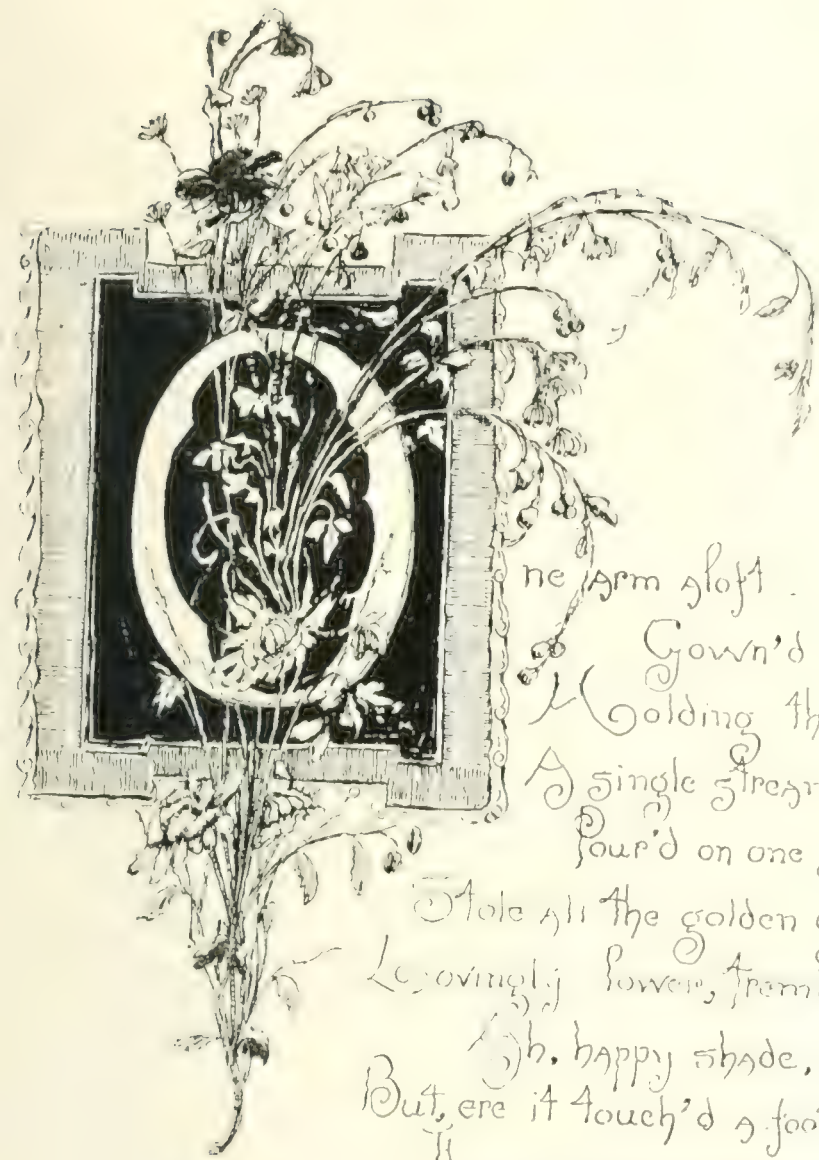 One arm aloft
Gown'd
Holding th
A single strea
Pour'd on one
Stole all the golden
Lovingly lower, trem
Ah, happy shade,
But, ere it touch'd a foo